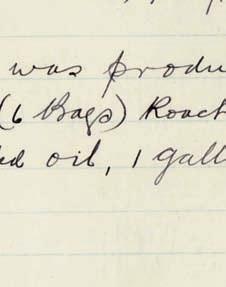 was produ
(6 Bags) Roach
ed oil, 1 gall